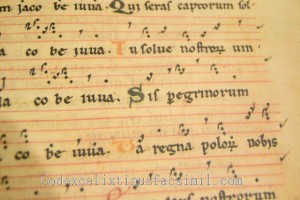 m jaco be iuua. Qui seras captorum sol
co be iuua. Tu solue nostrorum uin
co be iuua. Sis peregrinorum
co be iuua. Da regna polorum nobis
codexcalixtinusfacsimil.com
nostrorum